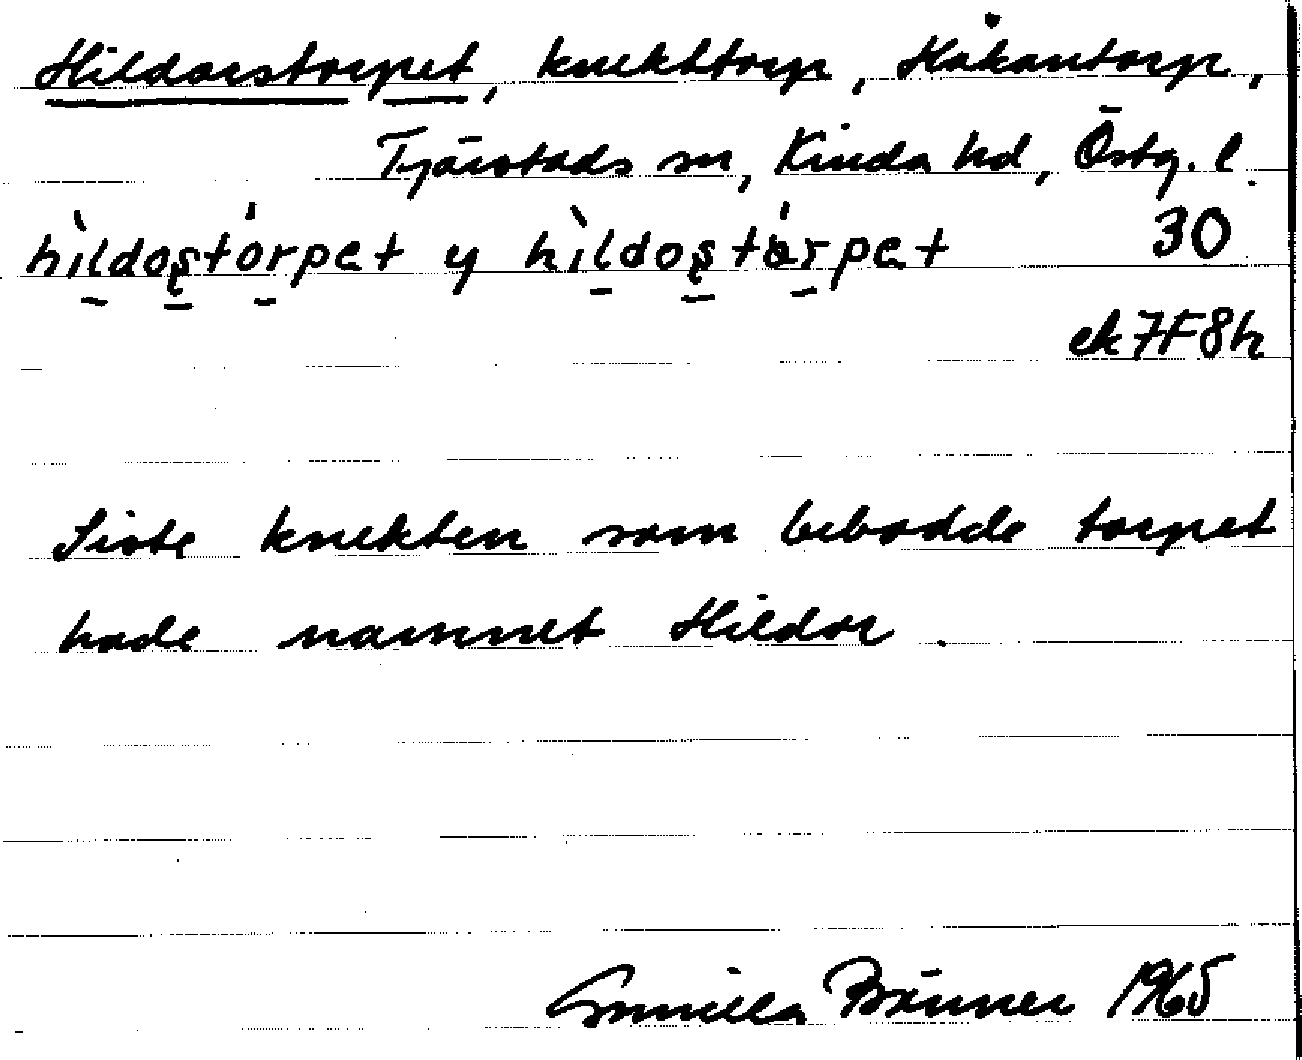 Hildorstorpet, knekttorp, Håkantorp,
Tjärstads sn, Kinda hd, Östg. l.
hìldoʂtórpet y hìldoʂtórpet 30
ek 7F8h
Siste knekten som bebodde torpet
hade namnet Hildor.
Gunilla Bänner 1965